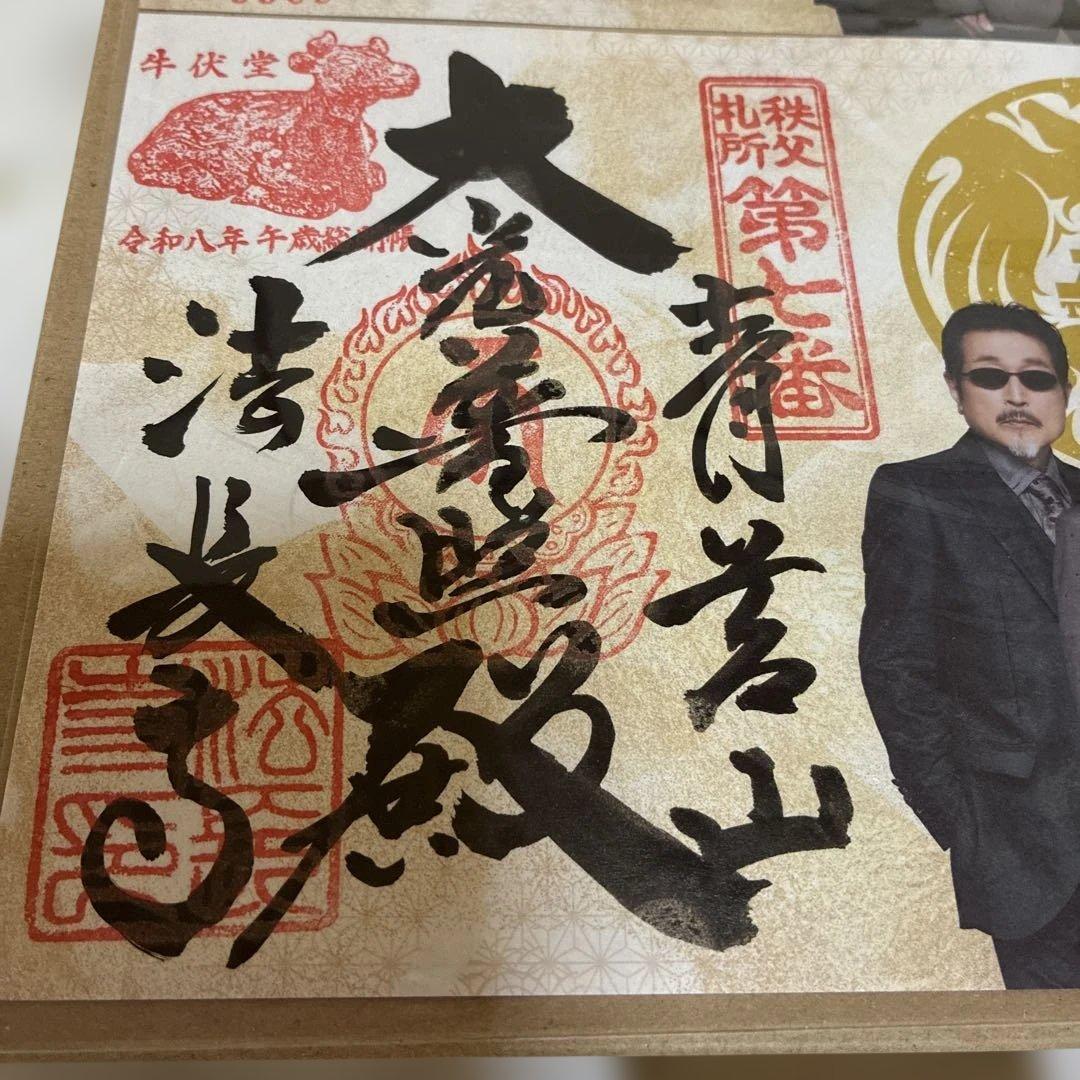 秩父
札所
第七番
青苔山
大光普照殿
法長寺
牛伏堂
令和八年 午歳総開帳